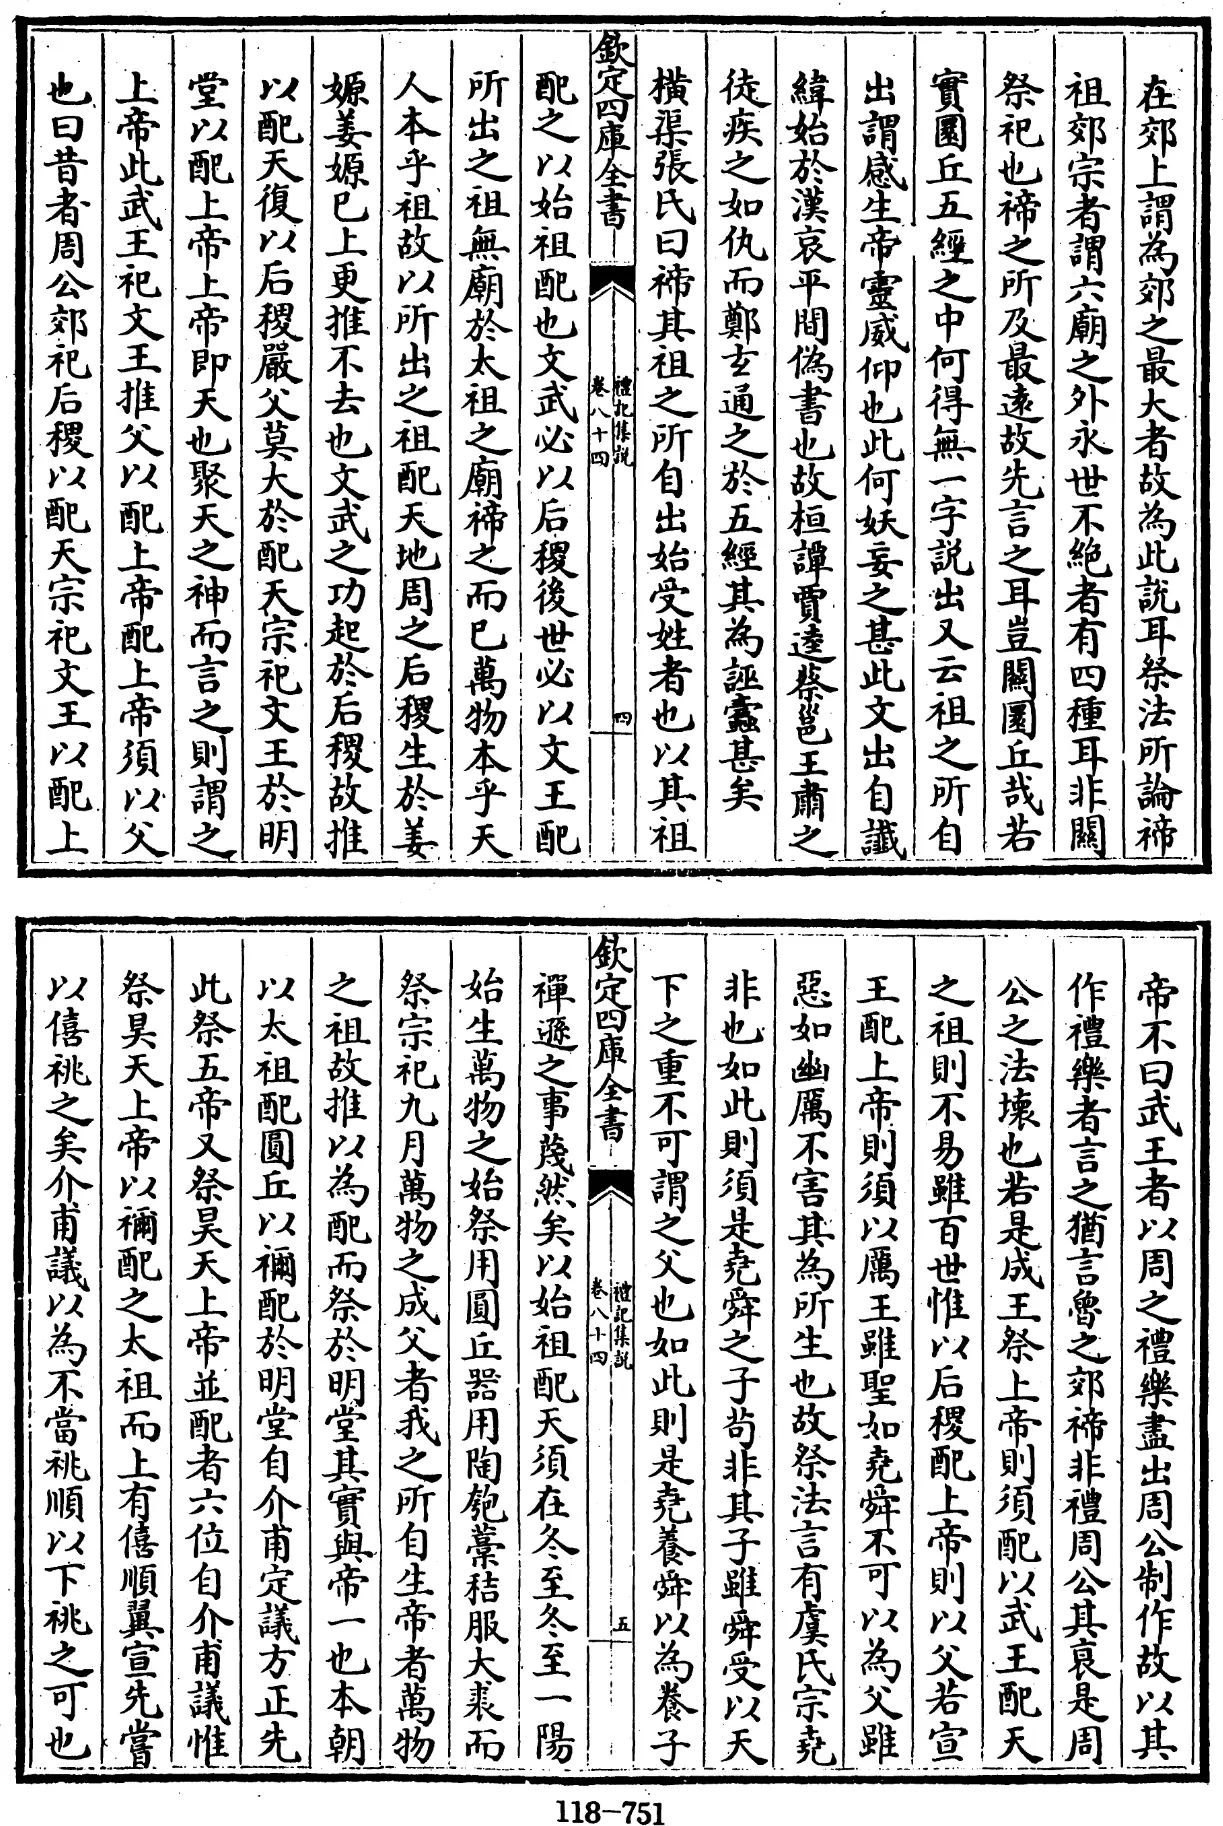 在郊上謂為郊之最大者故為此說耳祭法所論禘
祖郊宗者謂六廟之外永世不絶者有四種耳非關
祭祀也禘之所及最遠故先言之耳豈關圜丘哉若
實圜丘五經之中何得無一字説出又云祖之所自
出謂感生帝靈威仰也此何妖妄之甚此文出自讖
緯始於漢哀平間偽書也故桓譚賈逵蔡邕王肅之
徒疾之如仇而鄭玄通之於五經其為誣蠹甚矣
橫渠張氏曰禘其祖之所自出始受姓者也以其祖
欽定四庫全書
禮記集說
卷八十四
四
配之以始祖配也文武必以后稷後世必以文王配
所出之祖無廟於太祖之廟禘之而已萬物本乎天
人本乎祖故以所出之祖配天地周之后稷生於姜
嫄姜嫄巳上更推不去也文武之功起於后稷故推
以配天復以后稷嚴父莫大於配天宗祀文王於明
堂以配上帝上帝即天也聚天之神而言之則謂之
上帝此武王祀文王推父以配上帝配上帝須以父
也曰昔者周公郊祀后稷以配天宗祀文王以配上
帝不曰武王者以周之禮樂盡出周公制作故以其
作禮樂者言之猶言魯之郊禘非禮周公其衰是周
公之法壞也若是成王祭上帝則須配以武王配天
之祖則不易雖百世惟以后稷配上帝則以父若宣
王配上帝則須以厲王雖聖如堯舜不可以為父雖
惡如幽厲不害其為所生也故祭法言有虞氏宗堯
非也如此則須是堯舜之子苟非其子雖舜受以天
下之重不可謂之父也如此則是堯養舜以為養子
欽定四庫全書
禮記集說
卷八十四
五
禪遜之事蔑然矣以始祖配天須在冬至冬至一陽
始生萬物之始祭用圓丘器用陶匏藁秸服大裘而
祭宗祀九月萬物之成父者我之所自生帝者萬物
之祖故推以為配而祭於明堂其實與帝一也本朝
以太祖配圓丘以禰配於明堂自介甫定議方正先
此祭五帝又祭昊天上帝並配者六位自介甫議惟
祭昊天上帝以禰配之太祖而上有僖順翼宣先嘗
以僖祧之矣介甫議以為不當祧順以下祧之可也
118-751